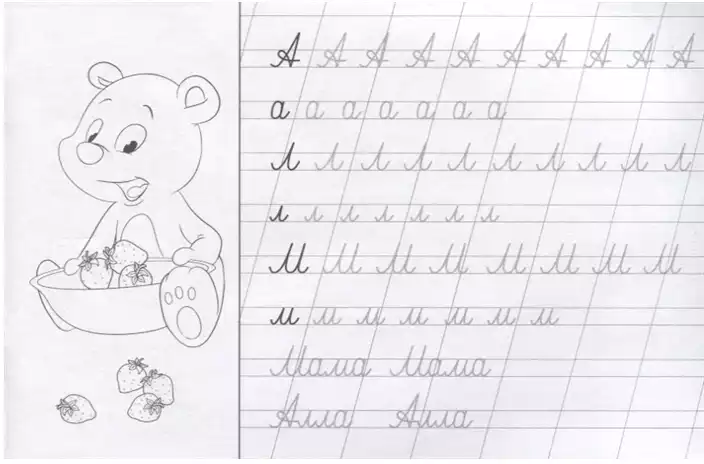 А А А А А А А А А А
а а а а а а а
Л Л Л Л Л Л Л Л Л Л
л л л л л л л
М М М М М М М М
м м м м м м м
Мама Мама
Алла Алла